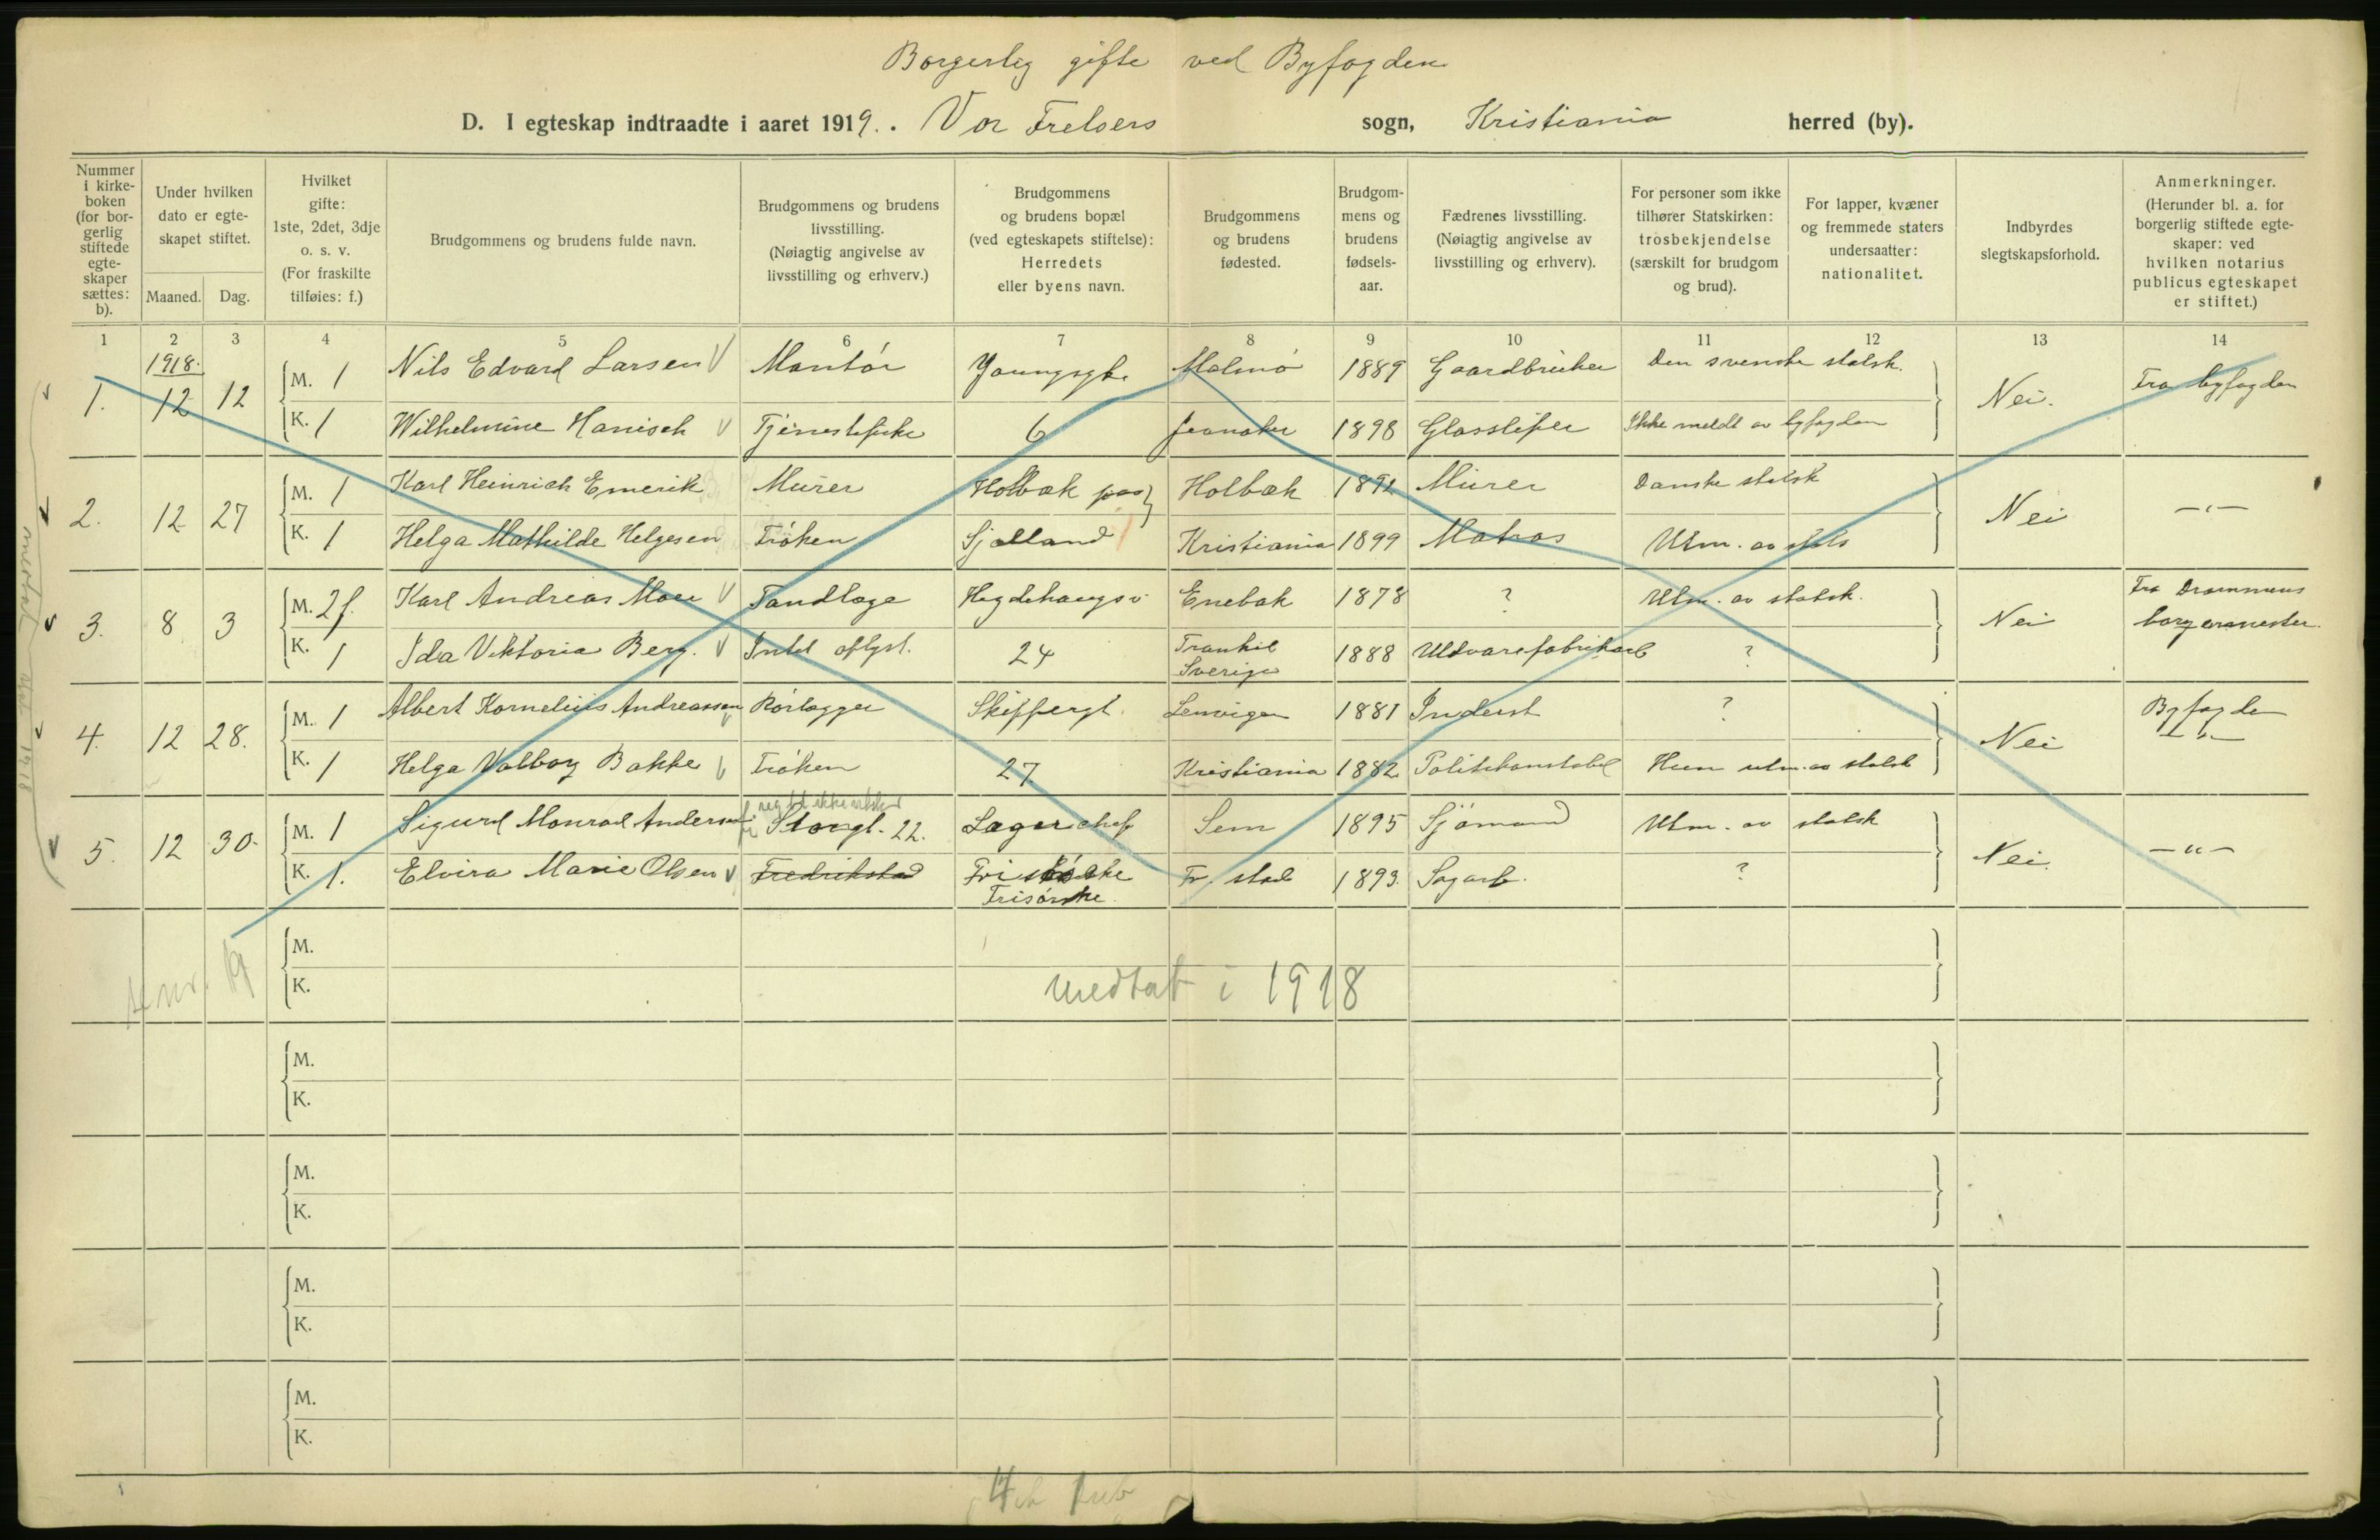 Borgerlig gifte ved Byfogden
D. I egteskap indtraadte i aaret 1919. Vor Frelsers sogn, Kristiania herred (by).
Nummer i kirke-boken (for bor-gerlig stiftede egte-skaper sættes: b).
Under hvilken dato er egte-skapet stiftet.
Maaned. Dag.
Hvilket gifte: 1ste, 2det, 3dje o. s. v. (For fraskilte tilføies: f.)
Brudgommens og brudens fulde navn.
Brudgommens og brudens livsstilling. (Nøiagtig angivelse av livsstilling og erhverv.)
Brudgommens og brudens bopæl (ved egteskapets stiftelse): Herredets eller byens navn.
Brudgommens og brudens fødested.
Brudgom-mens og brudens fødsels-aar.
Fædrenes livsstilling. (Nøiagtig angivelse av livsstilling og erhverv).
For personer som ikke tilhører Statskirken: trosbekjendelse (særskilt for brudgom og brud).
For lapper, kvæner og fremmede staters undersaatter: nationalitet.
Indbyrdes slegtskapsforhold.
Anmerkninger. (Herunder bl. a. for borgerlig stiftede egte-skaper: ved hvilken notarius publicus egteskapet er stiftet.)
1 2 3 4 5 6 7 8 9 10 11 12 13 14
1918.
1. 12 12 M. 1 Nils Edvard Larsen Montör Youngsgt. Malmö 1889 Gaardbruker Den svenske statsk. Nei. Fra byfogden
K. 1 Wilhelmine Hanisch Tjenestepike 6 Jevnaker 1898 Glassliper Ikke meldt av byfogden
2. 12 27 M. 1 Karl Heinrich Emerik Murer Holbæk paa Holbæk 1892 Murer Danske statsk Nei —"—
K. 1 Helga Mathilde Helgesen Fröken Sjælland Kristiania 1899 Matros Utm. av stats
3. 8 3 M. 2 f. Karl Andreas Moe Tandlæge Hegdehaugsv. Enebak 1878 ? Utm. av statsk. Nei Fra Drammens borgermester.
K. 1 Ida Viktoria Berg. Intet oplyst. 24 Trankil Sverige 1888 Uldvarefabrikarb ?
4. 12 28. M. 1 Albert Kornelius Andreassen Rörlægger Skippergt. Lenvigen 1881 Inderst ? Nei Byfogden —"—
K. 1 Helga Valborg Bakke Fröken 27 Kristiania 1882 Politikonstabel Hun utm. av statsk
5. 12 30. M. 1 Sigurd Monrad Andersen Storgt. 22. Lagerchef Sem 1895 Sjömand Utm. av statsk Nei. —"—
K. 1. Elvira Marie Olsen Fredrikstad Frisörske Fr. stad 1893. Sagarb. ?
Frisörske.
M.
K.
medtat i 1918
M.
K.
M.
K.
M.
K.
M.
K.